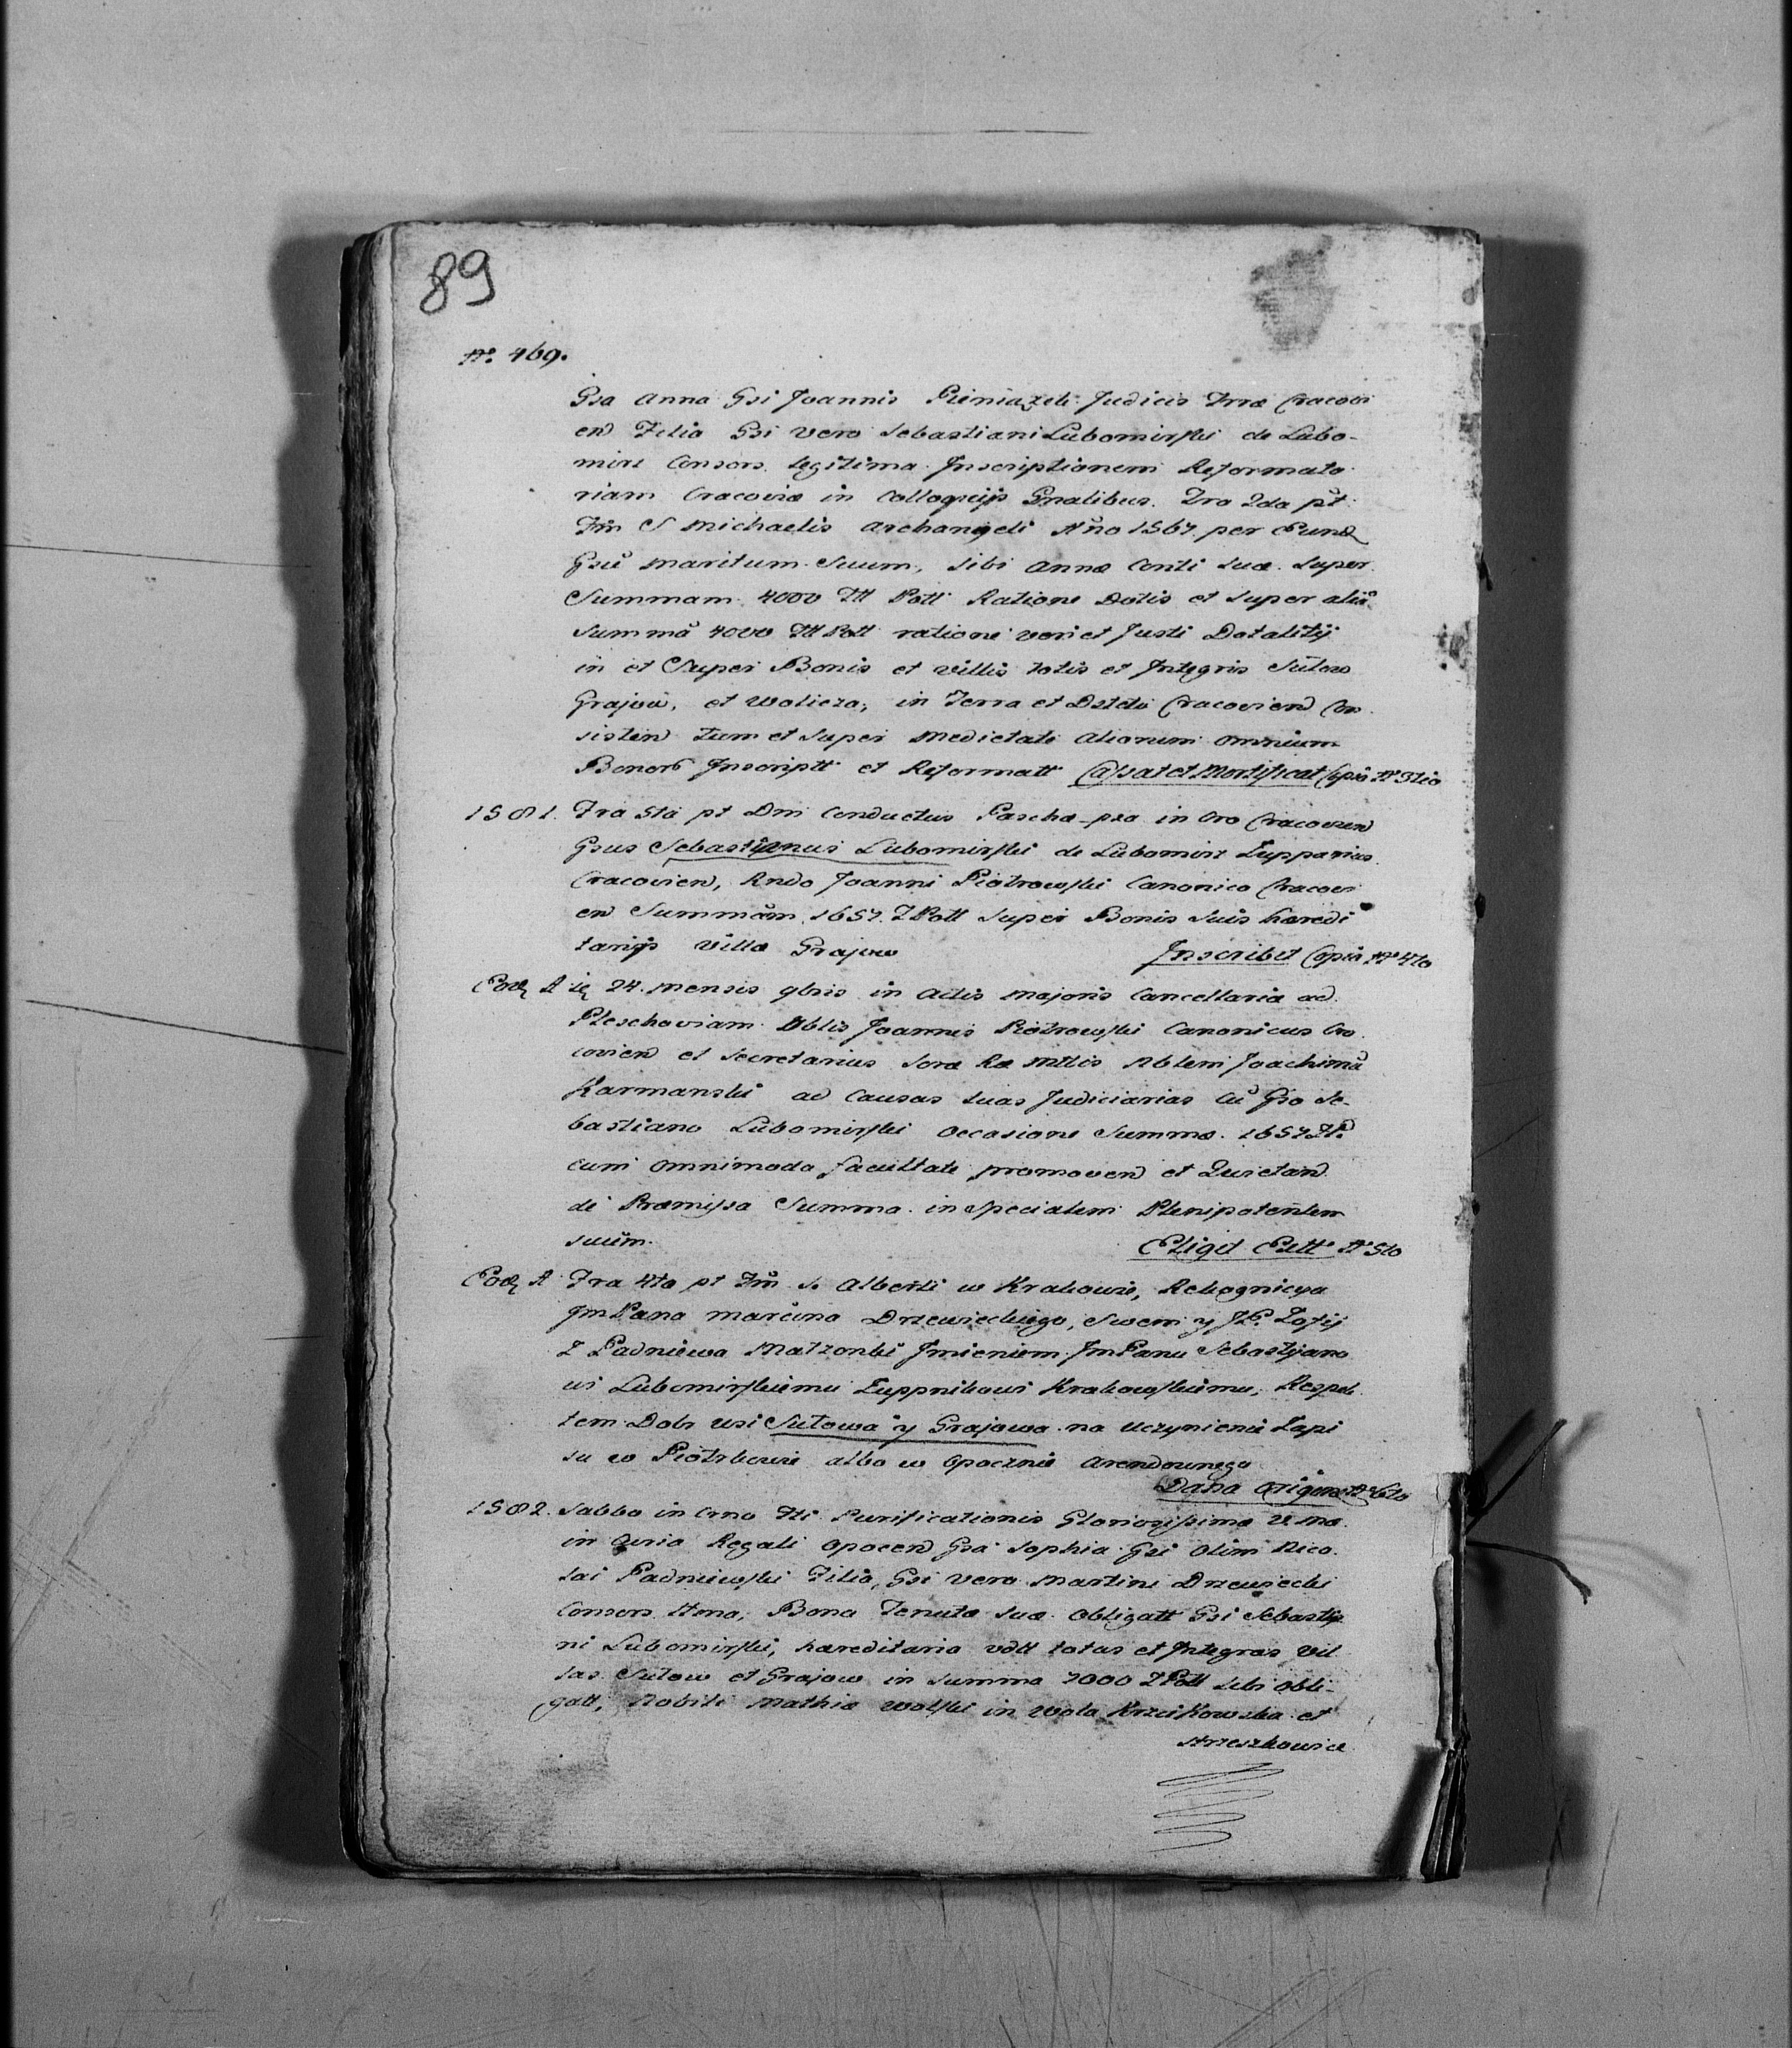 89
No. 469.
Gsa Anna Gsi Joannis Pieniązek Judicis Trræ Cracovi
en Filia Gsi vero Sebastiani Lubomirski de Lubo-
mirz Consors legitima Inscriptionem Reformato
riam Cracoviæ in Colloquijs Gnalibus Fra 2da pt
Fm S Michaelis Archangeli Ano 1567 per Eund
Gsu maritum Suum, sibi Annæ Conti suæ super
Summam 4000 Poll Ratione Dotis et super alia
Summa 4000 Poll ratione veri et Justi Dotalitij
in et Super Bonis et villis totis et Integris Sulow
Grajow, et Wolicza, in Terra et Dsttu Cracovien Con
sisten tum et super medietate aliorum omnium
Bonor Inscriptt et Reformatt Cassat et Mortificat Copia No 3tio
1581. Fra 5ta pt Dni Conductus Pascha-pxa in Cro Cracovien
Gsus Sebastianus Lubomirski de Lubomirz Zupparius
Cracovien, Rndo Joanni Piotrowski Canonico Cracovi
en Summam 1657 Poll super Bonis suis hæredi
tarijs Villa Grajow Inscribit Copia No 4to
Eod A 24 mensis 9bris in Actis majoris Cancellariæ ad
Pleschoviam Nblis Joannes Piotrowski Canonicus Cra
covien et Secretarius Soræ Ræ Mttis Nblem Joachimu
Karmanski ad Causas suas Judiciarias cu Gso Se-
bastiano Lubomirski occasione Summæ 1657
cum omnimoda facultate promoven et Quietan
de Præmissa Summa in specialem Plenipotentem
suum. Eligit Extt No 5to
Eod A Fra 4ta pt Fm S. Alberti w Krakowie, Rekognicya
Jm Pana Marcina Drzewieckiego, Swem y JP. Zofij
z Padniewa Małzonki Jmieniem JmPanu Sebastyano
wi Lubomirskiemu Zuppnikowi Krakowskiemu, Respek
tem Dobr wsi Sułowa y Grajowa na Uczynienie Zapi
su w Piotrkowie albo w Opocznie Arendownego
Dana Origin No 6to
1582. Sabbo in Crno Purificationis Gloriosissimæ
in Curia Regali Opocen Gsa Sophia Gsi Olim Nico
lai Padniewski Filia, Gsi vero Martini Drzewiecki
Consors Ltma, Bona Tenutæ suæ obligatt Gsi Sebastja
ni Lubomirski, hæreditaria vdtt totas et Integras vil
las Sulow et Grajow in summa 7000 Poll sibi obli-
gatt, Nobili Mathiæ Wolski in Wola Krzcikowska et
Strzeszkowice